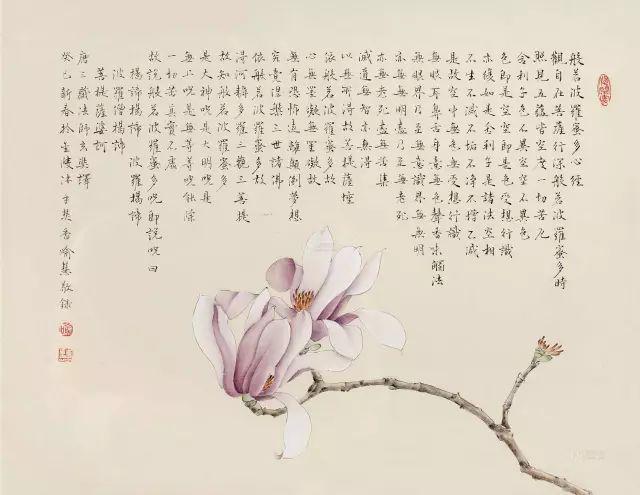 般若波羅蜜多心經
觀自在菩薩行深般若波羅蜜多時
照見五蘊皆空度一切苦厄
舍利子色不異空空不異色
色即是空空即是色受想行識
亦復如是舍利子是諸法空相
不生不滅不垢不淨不增不減
是故空中無色無受想行識
無眼耳鼻舌身意無色聲香味觸法
無眼界乃至無意識界無無明
亦無無明盡乃至無老死
亦無老死盡無苦集
滅道無智亦無得
以無所得故菩提薩埵
依般若波羅蜜多故
心無罣礙無罣礙故
無有恐怖遠離顛倒夢想
究竟涅槃三世諸佛
依般若波羅蜜多故
得阿耨多羅三藐三菩提
故知般若波羅蜜多
是大神呪是大明呪是
無上呪是無等等呪能除
一切苦真實不虛
故說般若波羅蜜多呪即說呪曰
揭諦揭諦 波羅揭諦
波羅僧揭諦
菩提薩婆訶
唐三藏法師玄奘譯
癸巳新春於金陵沐手焚香喻慧敬錄